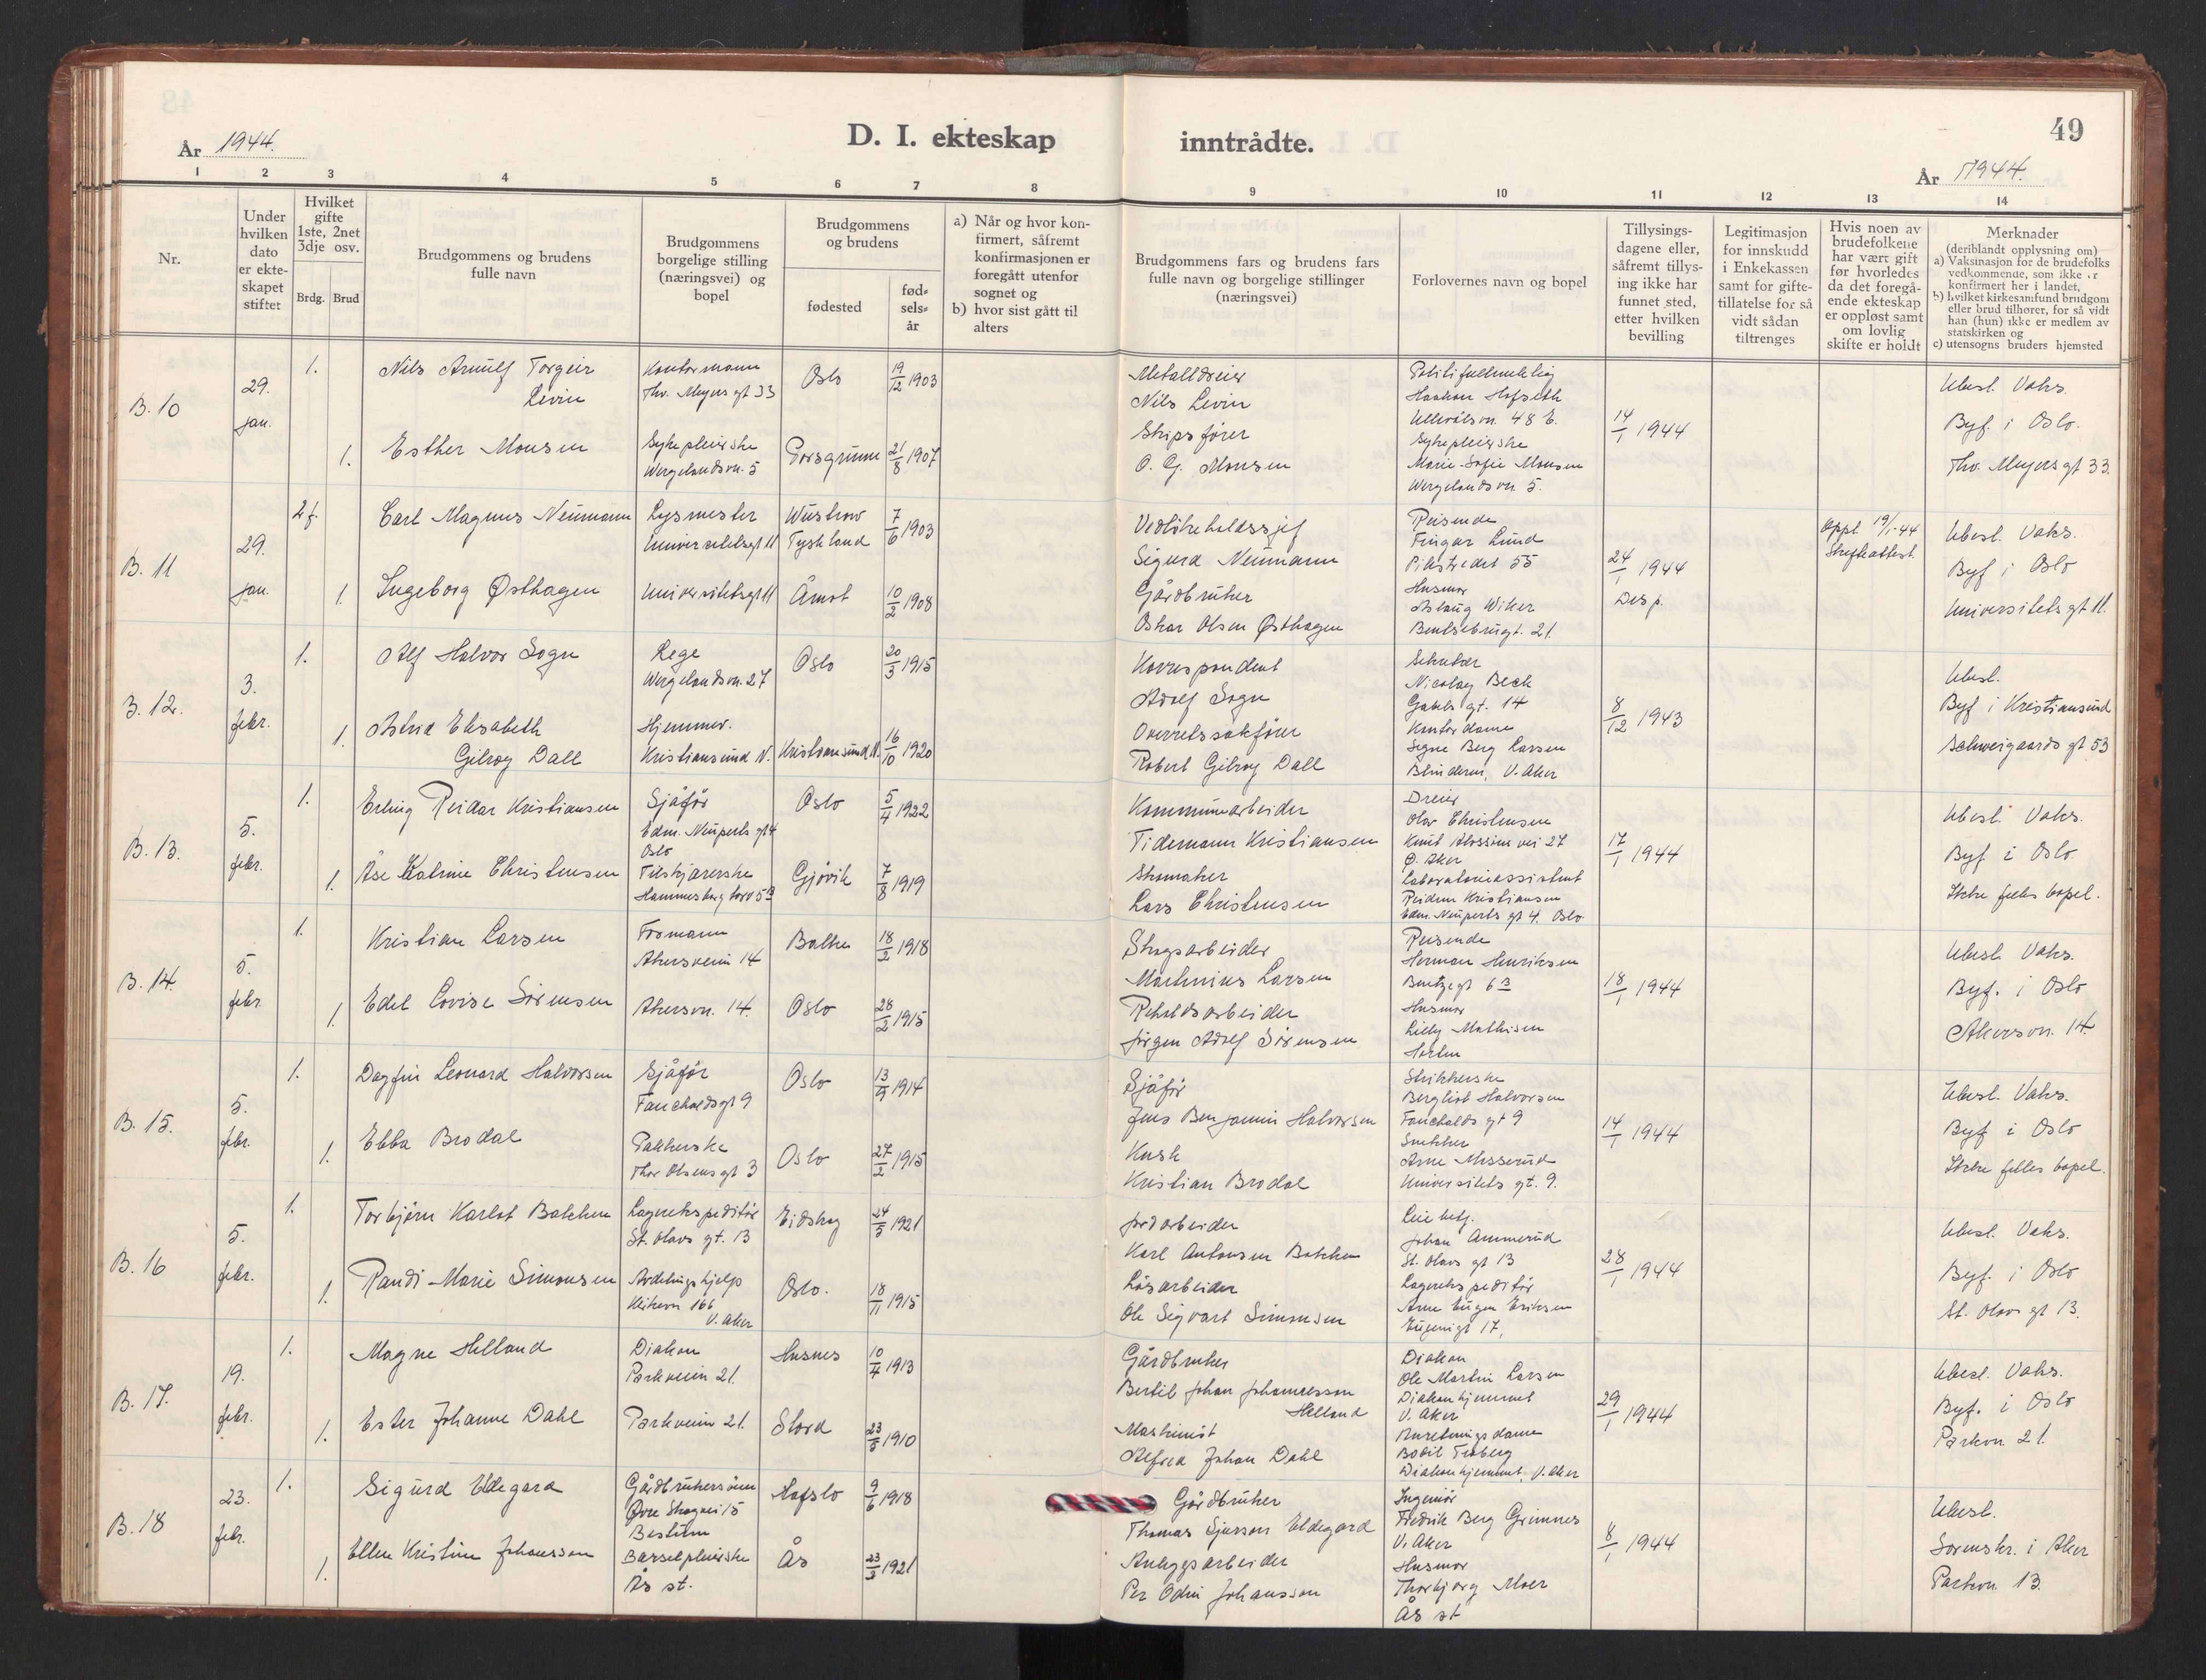 48
År 1944.
D. I. ekteskap
inntrådte.
49
År 1944.
1 2 3 4 5 6 7 8 9 10 11 12 13 14
Nr.
Under
hvilken
dato
er ekte-
skapet
stiftet
Hvilket
gifte
1ste, 2net
3dje osv.
Brdg. Brud
Brudgommens og brudens
fulle navn
Brudgommens
borgelige stilling
(næringsvei) og
bopel
Brudgommens
og brudens
fødested
fød-
sels-
år
a) Når og hvor kon-
firmert, såfremt
konfirmasjonen er
foregått utenfor
sognet og
b) hvor sist gått til
alters
Brudgommens fars og brudens fars
fulle navn og borgelige stillinger
(næringsvei)
Forlovernes navn og bopel
Tillysings-
dagene eller,
såfremt tillys-
ing ikke har
funnet sted,
etter hvilken
bevilling
Legitimasjon
for innskudd
i Enkekassen
samt for gifte-
tillatelse for så
vidt sådan
tiltrenges
Hvis noen av
brudefolkene
har vært gift
før hvorledes
da det foregå-
ende ekteskap
er oppløst samt
om lovlig
skifte er holdt
Merknader
(deriblandt opplysning om)
a) Vaksinasjon for de brudefolks
vedkommende, som ikke er
konfirmert her i landet,
b) hvilket kirkesamfund brudgom
eller brud tilhører, for så vidt
han (hun) ikke er medlem av
statskirken og
c) utensogns bruders hjemsted
B. 10
29.
jan.
1.
Nils Arnulf Torgeir
Levin
Kontormann
Thv. Meyers gt 33
Oslo
19/12 1903
1.
Esther Monsen
Sykepleierske
Wergelandsvn. 5
Porsgrunn
21/8 1907
Metalldreier
Nils Levin
Skipsfører
O. G. Monsen
Politifullmektig
Haakon Hofseth
Ullevålsvn. 48 E.
Sykepleierske
Marie-Sofie Monsen
Wergelandsvn. 5.
14/1 1944
Ubesl. Vaks.
Byf. i Oslo.
Thv. Meyers gt 33.
B. 11
29.
jan.
2 f.
Carl Magnus Neumann
Lysmester
Universitetsgt 11
Wustrow
Tyskland
7/6 1903
1.
Ingeborg Østhagen
Universitetsgt 11
Åmot
10/2 1908
Vedlikeholdssjef
Sigurd Neumann
Gårdbruker
Oskar Olsen Østhagen
Reisende
Fingar Lund
Pilestredet 55
Husmor
Aslaug Wiker
Bentsebrugt. 21.
24/1 1944
Disp.
Oppl. 19/1-44
Skifteattest.
Ubesl. Vaks.
Byf i Oslo
Universitets gt 11.
B. 12.
3.
febr.
1.
Alf Halvor Sogn
Lege
Wergelandsvn. 27
Oslo
20/3 1915
1.
Astrid Elisabeth
Gilroy Dall
Hjemmev.
Kristiansund N.
Kristiansund N.
16/10 1920
Korrespondent
Adolf Sogn
Overrettssakfører
Robert Gilroy Dall
Sekretær
Nicolay Beck
Gabels gt. 14
Kontordame
Signe Berg Larsen
Blindern, V. Aker
8/12 1943
Ubesl.
Byf i Kristiansund
Schweigaards gt 53
B. 13.
5.
febr.
1.
Erling Reidar Kristiansen
Sjåfør
Edm. Neuperts gt 4
Oslo
Oslo
5/4 1922
1.
Åse Katrine Christensen
Tilskjærerske
Hammersborg torv 5 B
Gjøvik
7/8 1919
Kommunearbeider
Tidemann Kristiansen
Skomaker
Lars Christensen
Dreier
Olav Christensen
Knut Alvssons vei 27
Ø. Aker
Laboratorieassistent
Reidun Kristiansen
Edm. Neuperts gt 4. Oslo.
17/1 1944
Ubesl. Vaks.
Byf i Oslo.
Ikke felles bopel.
B. 14.
5.
febr.
1.
Kristian Larsen
Formann
Akersveien 14
Balke
18/2 1918
1.
Edel Lovise Sørensen
Akersvn. 14.
Oslo
28/2 1915
Skogsarbeider
Mathinius Larsen
Jørgen Adolf Sørensen
Reisende
Herman Henriksen
6 B
Husmor
Lilly Mathisen
Horten
18/1 1944
Ubesl. Vaks.
Byf. i Oslo
Akersvn. 14.
B. 15.
5.
febr.
1.
Dagfin Leonard Halvorsen
Sjåfør
Fauchaldsgt 9
Oslo
13/9 1914
1.
Ebba Brodal
Pakkerske
Thor Olsens gt 3
Oslo
27/2 1915
Sjåfør
Jens Benjamin Halvorsen
Kusk
Kristian Brodal
Strikkerske
Bergliot Halvorsen
Fauchalds gt 9
Snekker
Arne Misserud
Universitets gt. 9.
14/1 1944
Ubesl. Vaks.
Byf i Oslo
Ikke felles bopel.
B. 16
5.
febr.
1.
Torbjørn Karlot Batchen
Lagerekspeditør
St. Olavs gt. 13
Eidskog
24/5 1921
1.
Randi-Marie Simonsen
Avdelingshjelp
166
V. Aker
Oslo.
18/11 1915
Jordarbeider
Karl Antonsen Batchen
Løsarbeider
Ole Sigvart Simonsen
Johan Ammerud
St. Olavs gt 13
Lagerekspeditør
Arne Eugen Eriksen
Eugenigt 17,
28/1 1944
Ubesl. Vaks.
Byf. i Oslo
St. Olavs gt 13.
B. 17.
19.
febr.
1.
Magne Helland
Diakon
Parkveien 21.
Husnes
10/4 1913
1.
Ester Johanne Dahl
Parkveien 21.
Stord
23/5 1910
Gårdbruker
Bertil Johan Johannesson
Helland
Maskinist
Alfred Johan Dahl
Diakon
Ole Martin Larsen
Diakonhjemmet
V. Aker
Anretningsdame
Bodil Tedberg
Diakonhjemmet, V. Aker
29/1 1944
Ubesl. Vaks.
Byf. i Oslo
Parkvn. 21.
B. 18
23.
febr.
1.
Sigurd Eldegard
Gårdbrukersønn
Øvre Skogvei 15
Bestum
Hafslo
9/6 1918
1.
Ellen Kristine Johansson
Barselpleierske
Ås st.
Ås
23/3 1921
Gårdbruker
Thomas Sjurson Eldegard
Anleggsarbeider
Per Odin Johansson
Ingeniør
Fredrik Berg Grimnes
V. Aker
Husmor
Thorbjørg Moer
Ås st
8/1 1944
Ubesl.
Sorenskr. i Aker
Parkvn. 13.